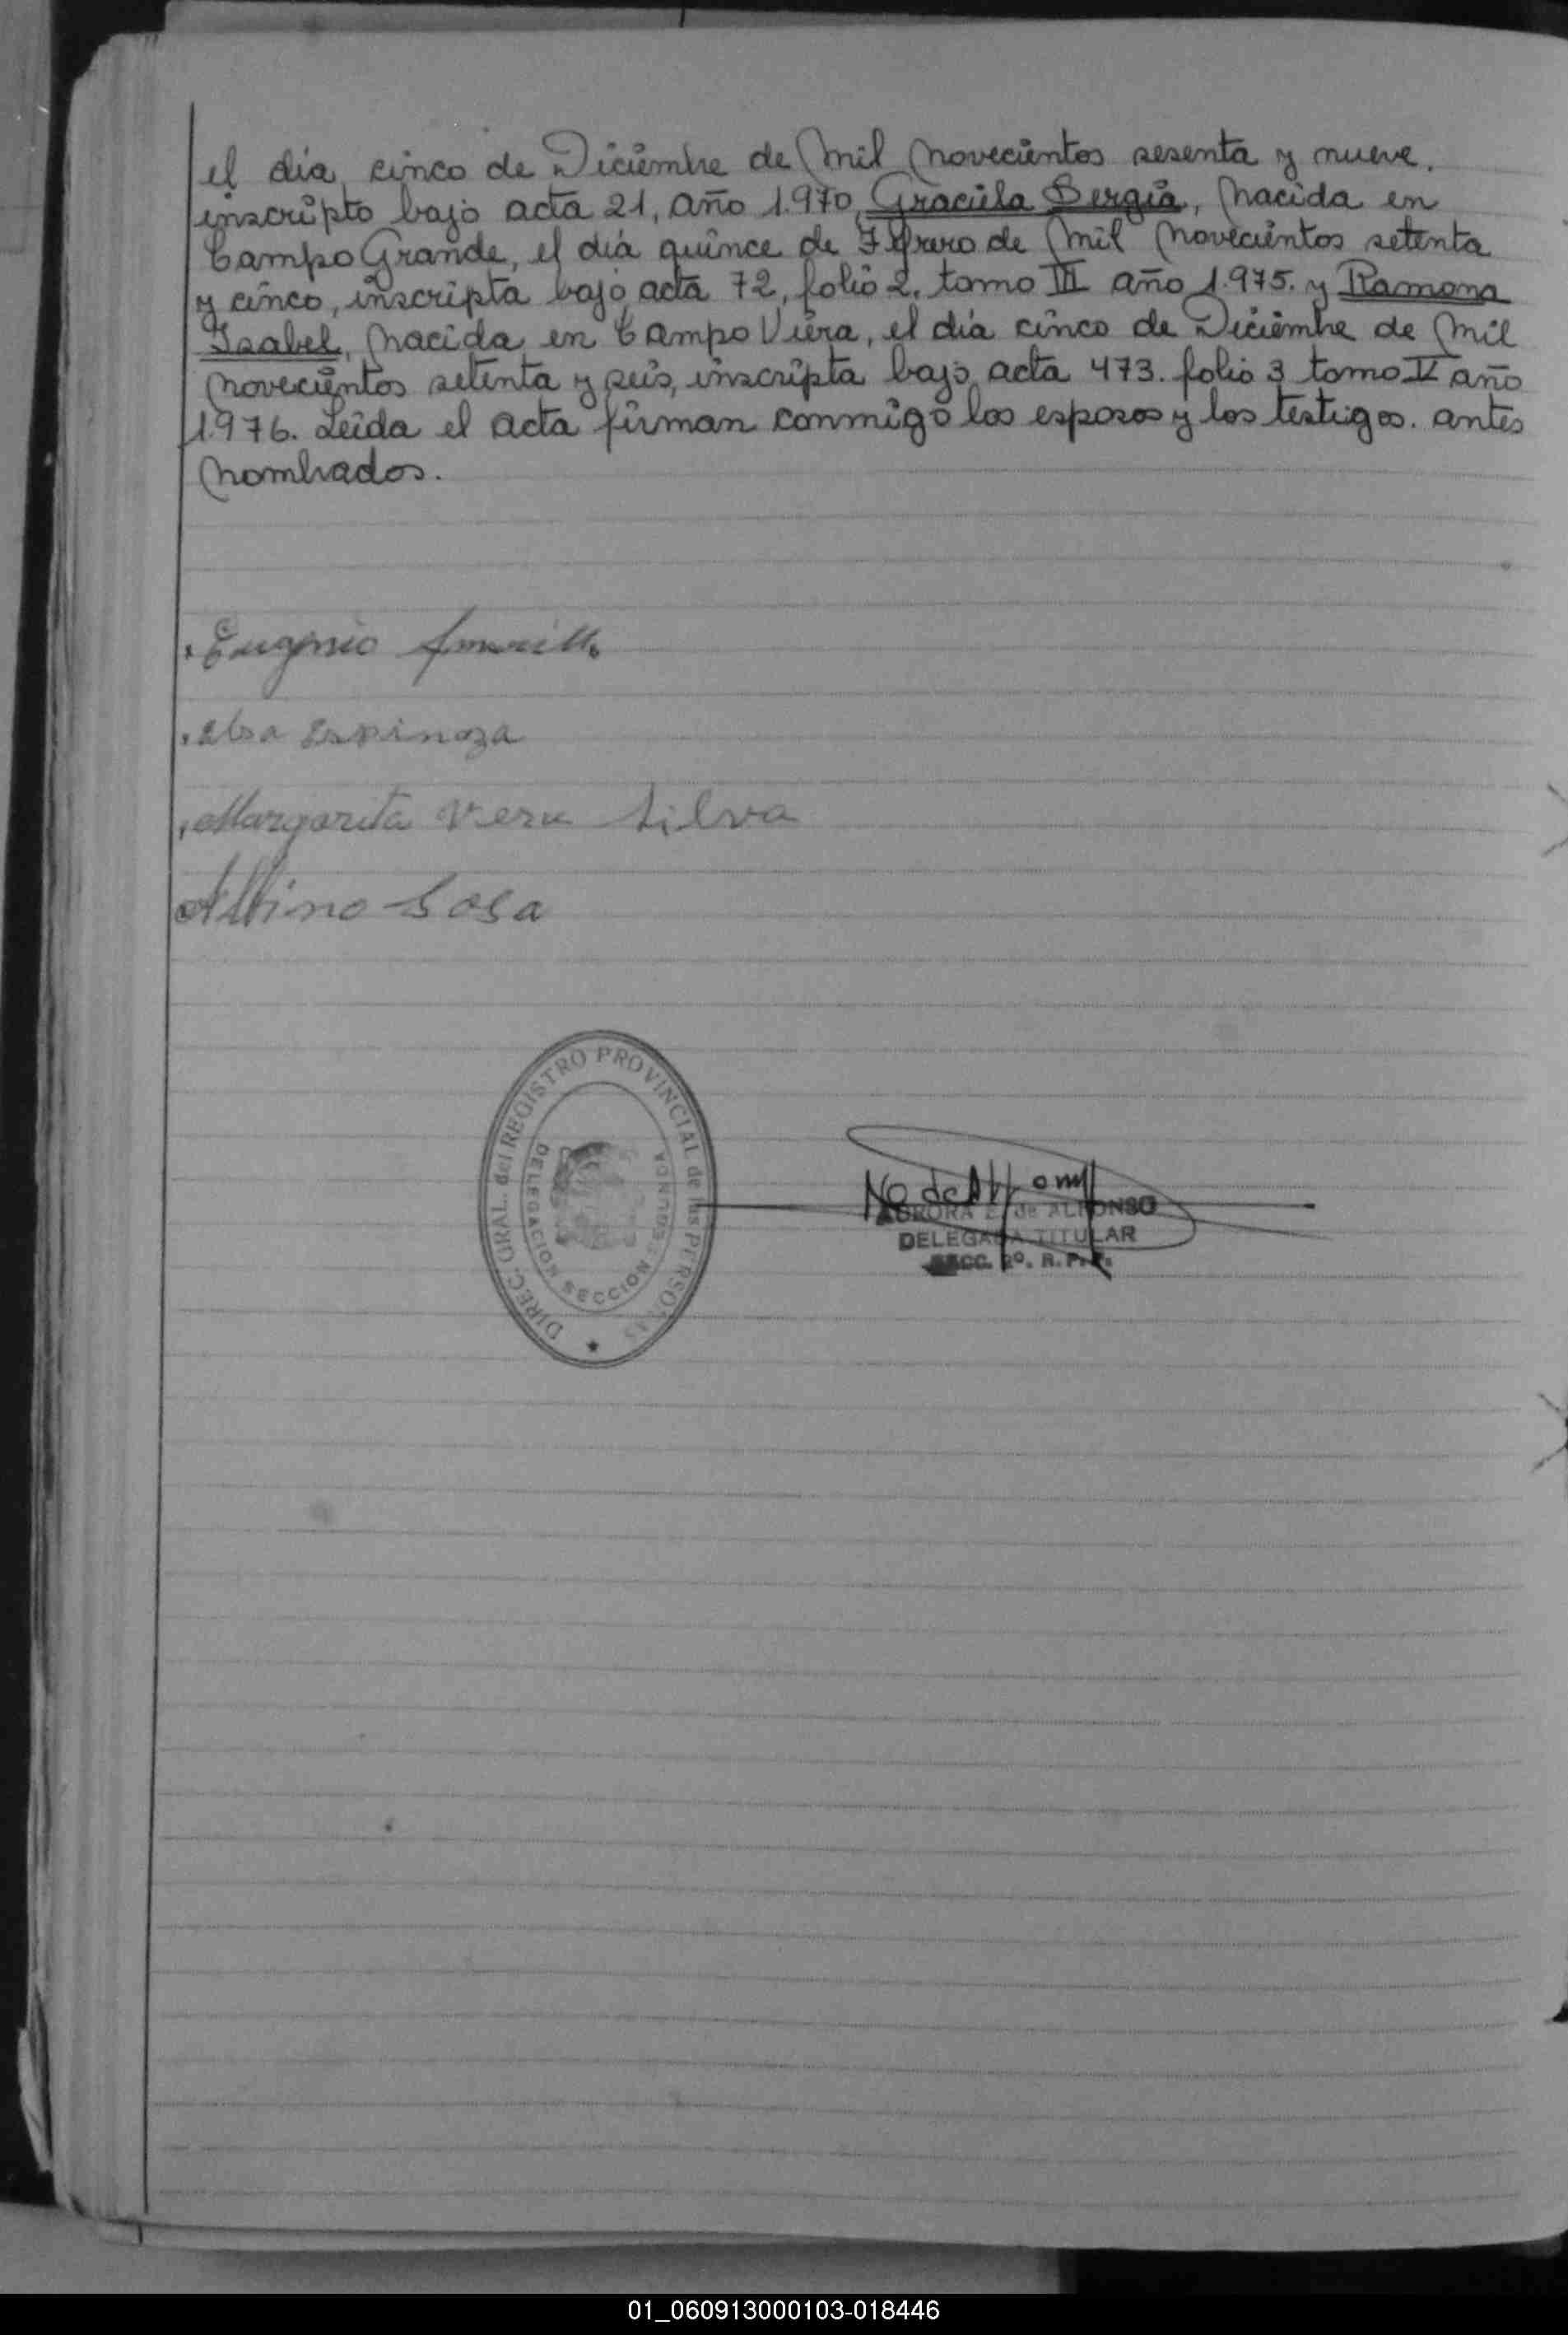 el día cinco de Diciembre de mil novecientos sesenta y nueve.
inscripto bajo acta 21, año 1.970, Graciela Bergia, nacida en
Campo Grande, el día quince de Febrero de mil novecientos setenta
y cinco, inscripta bajo acta 72, folio 2. tomo III año 1.975. y Ramona
Isabel, nacida en Campo Viera, el día cinco de Diciembre de mil
novecientos setenta y seis, inscripta bajo acta 473. folio 3 tomo V año
1.976. Leída el acta firman conmigo los esposos y los testigos. antes
nombrados.
Eugenio
Elsa Espinoza
Margarita Vera Silva
Albino Sosa
DIREC. GRAL. del REGISTRO PROVINCIAL de las PERSONAS
DELEGACION SECCION SEGUNDA
AURORA E. de ALFONSO
DELEGADA TITULAR
SECC. 2º. R. P. P.
01_060913000103-018446